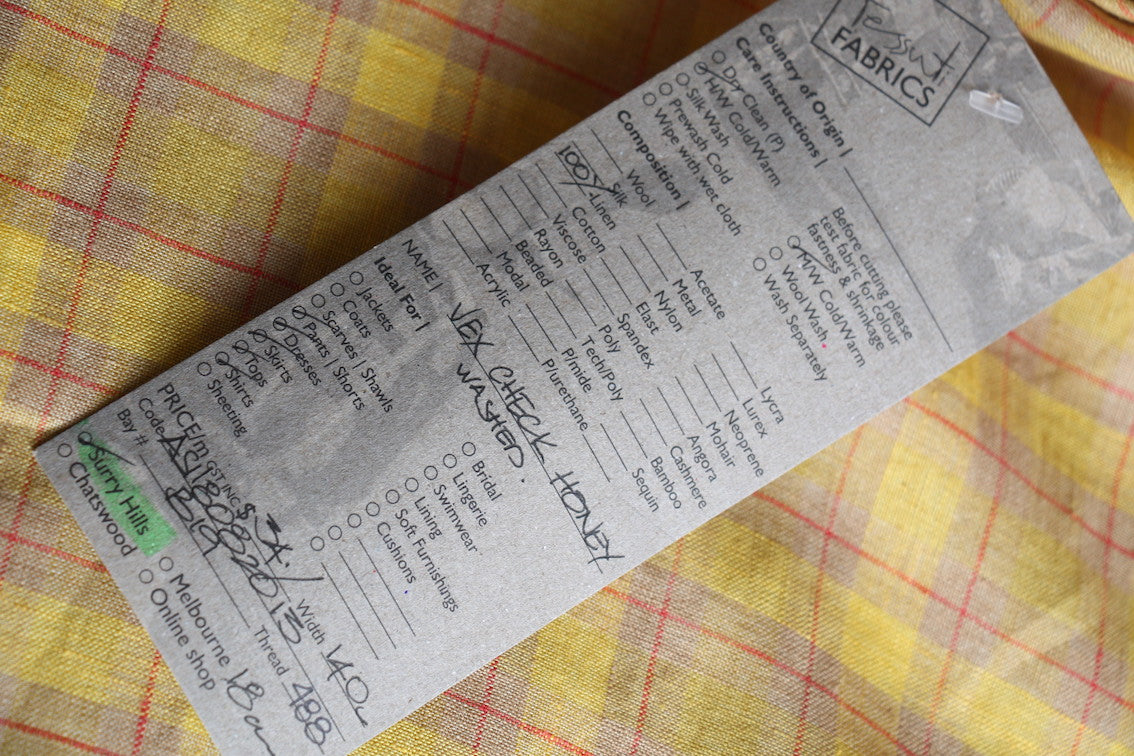 Tessuti
FABRICS
Country of Origin |
Care Instructions |
Dry Clean (P)
H/W Cold/Warm
Silk Wash
Prewash Cold
Wipe with wet cloth
Before cutting please
test fabric for colour
fastness & shrinkage
M/W Cold/Warm
Wool Wash
Wash Separately
Composition |
Wool
Silk
100% Linen
Cotton
Viscose
Rayon
Beaded
Modal
Acrylic
Acetate
Metal
Nylon
Elast
Spandex
Poly
Tech/Poly
P/mide
P/urethane
Lycra
Lurex
Neoprene
Mohair
Angora
Cashmere
Bamboo
Sequin
NAME | VEX CHECK HONEY
WASHED.
Ideal For |
Jackets
Coats
Scarves | Shawls
Pants | Shorts
Dresses
Skirts
Tops
Shirts
Sheeting
Bridal
Lingerie
Swimwear
Lining
Soft Furnishings
Cushions
PRICE/m (GST INC) $
Width 140
Code
Thread 488
Bay #
Surry Hills
Chatswood
Melbourne
Online shop